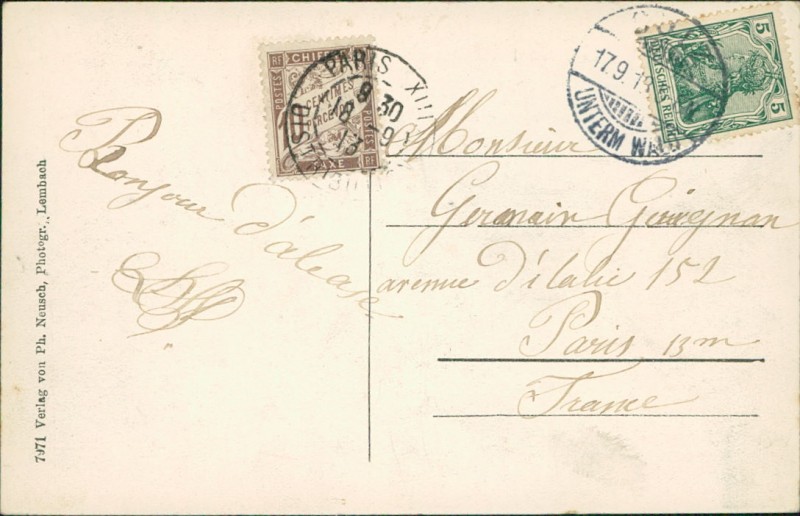 Bonjour d'alsace
7971 Verlag von Ph. Neusch, Photogr., Lembach
POSTES RF CHIFFRE RF
CENTIMES
PERCEVOIR
TAXE
PARIS XIII
8 30
18
9
13
DEUTSCHES REICH
5
5
17.9.13
UNTERM WALD
Monsieur
Germain
avenue d'italie 152
Paris 13m
France